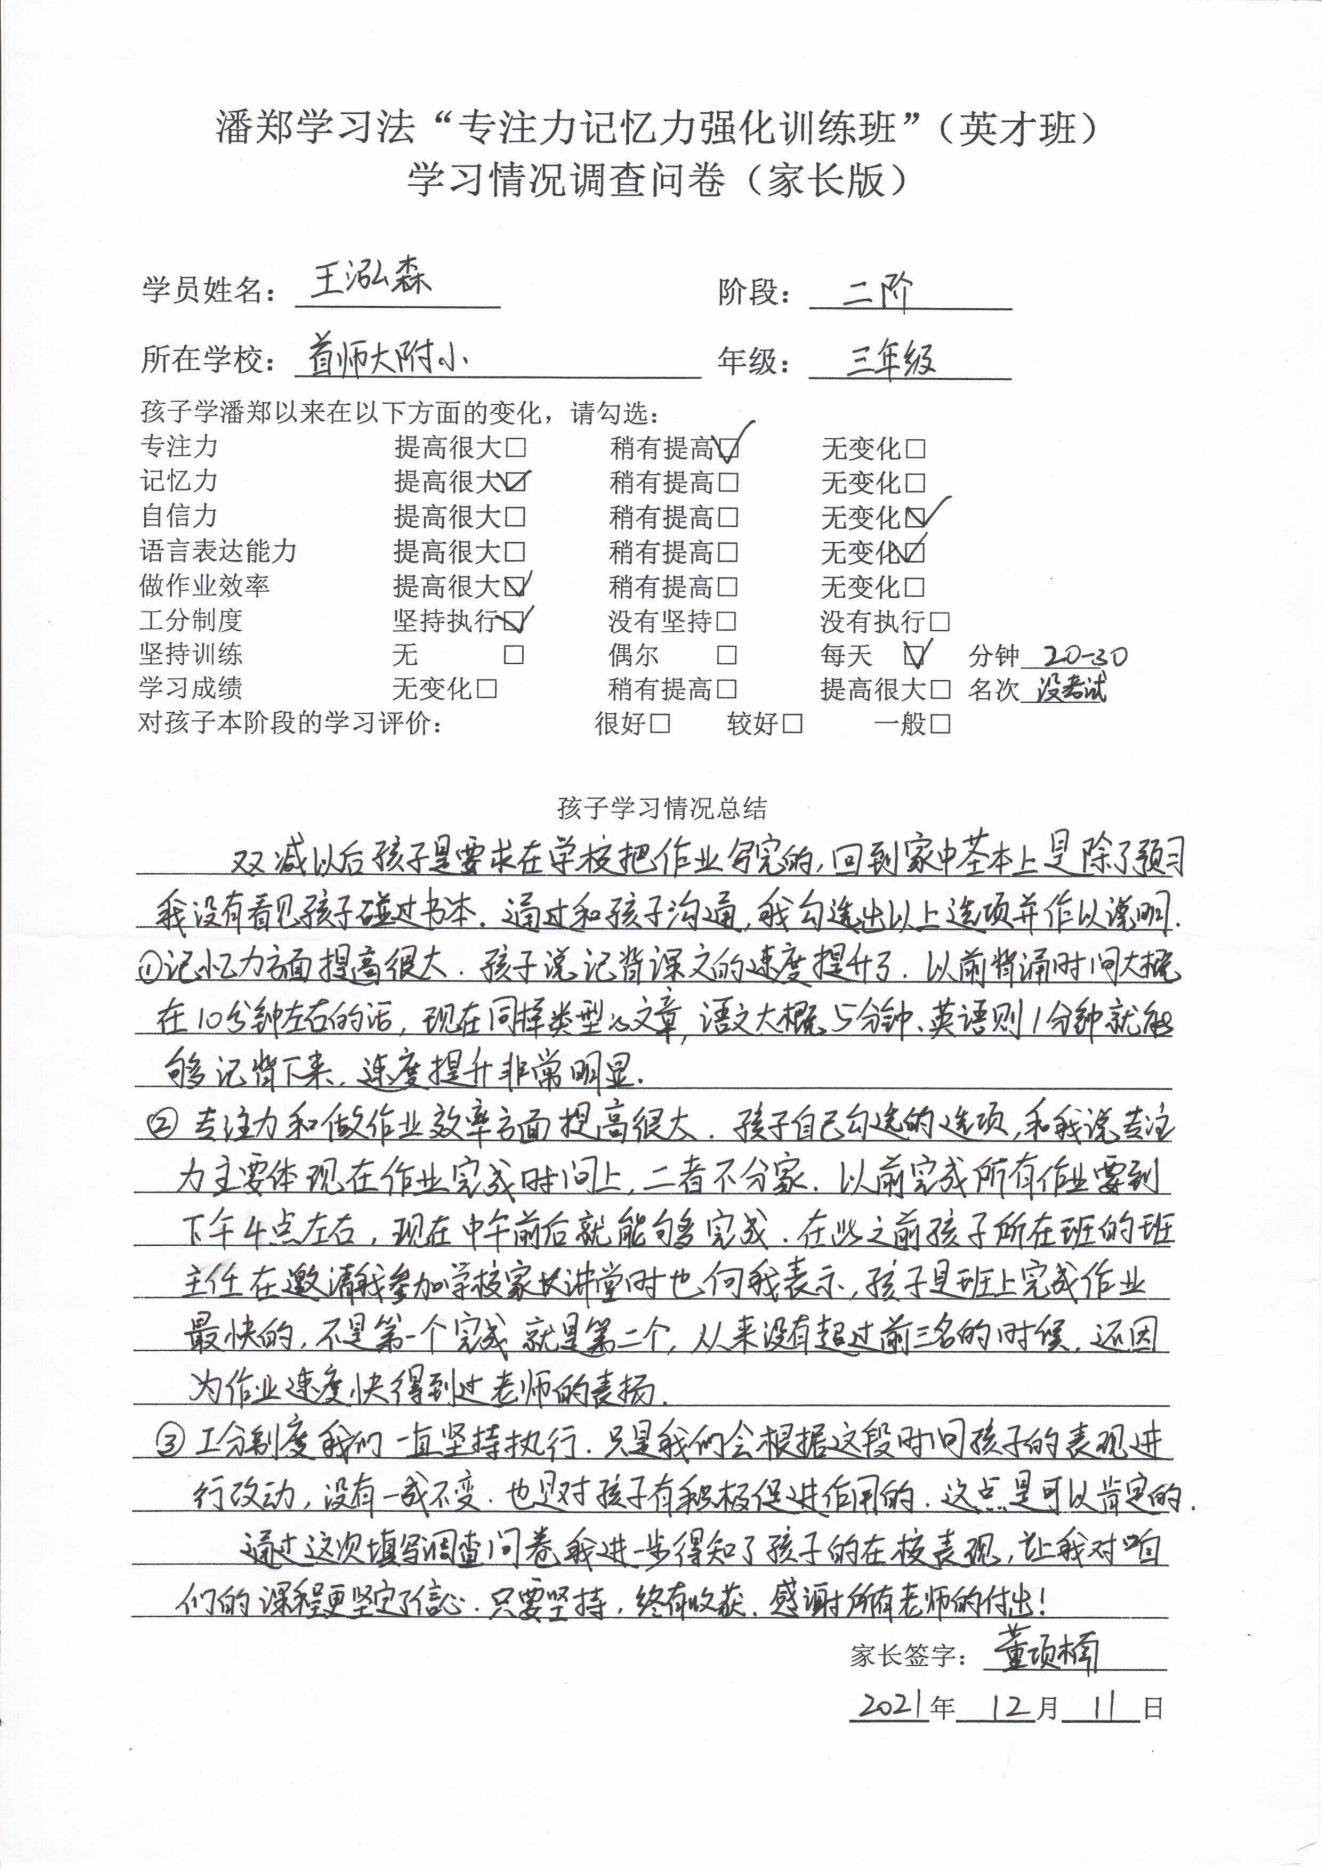 潘郑学习法“专注力记忆力强化训练班”（英才班）
学习情况调查问卷（家长版）
学员姓名： 王泓森 阶段： 二阶
所在学校： 首师大附小 年级： 三年级
孩子学潘郑以来在以下方面的变化，请勾选：
专注力 提高很大□ 稍有提高☑ 无变化□
记忆力 提高很大☑ 稍有提高□ 无变化□
自信力 提高很大□ 稍有提高□ 无变化☑
语言表达能力 提高很大□ 稍有提高□ 无变化☑
做作业效率 提高很大☑ 稍有提高□ 无变化□
工分制度 坚持执行☑ 没有坚持□ 没有执行□
坚持训练 无 □ 偶尔 □ 每天 ☑ 分钟 20-30
学习成绩 无变化□ 稍有提高□ 提高很大□ 名次 没考试
对孩子本阶段的学习评价： 很好□ 较好□ 一般□
孩子学习情况总结
双减以后孩子是要求在学校把作业写完的，回到家中基本上是除了预习
我没有看见孩子碰过书本．通过和孩子沟通，我勾选出以上选项并作以说明．
①记忆力方面提高很大．孩子说记背课文的速度提升了．以前背诵时间大概
在10分钟左右的话，现在同样类型的文章，语文大概5分钟、英语则1分钟就能
够记背下来，速度提升非常明显．
② 专注力和做作业效率方面提高很大．孩子自己勾选的选项，和我说专注
力主要体现在作业完成时间上，二者不分家．以前完成所有作业要到
下午4点左右，现在中午前后就能够完成．在此之前孩子所在班的班
主任在邀请我参加学校家长讲堂时也向我表示，孩子是班上完成作业
最快的，不是第一个完成就是第二个，从来没有超过前三名的时候，还因
为作业速度快得到过老师的表扬．
③工分制度我们一直坚持执行．只是我们会根据这段时间孩子的表现进
行改动，没有一成不变．也是对孩子有积极促进作用的．这点是可以肯定的．
通过这次填写调查问卷我进一步得知了孩子的在校表现，让我对咱
们的课程更坚定了信心．只要坚持，终有收获．感谢所有老师的付出！
家长签字： 董项楠
2021年 12月 11日